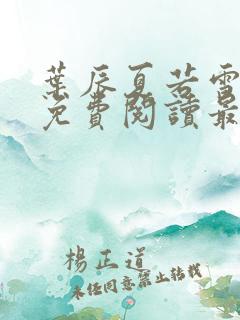 葉辰夏若雪
免費閱讀最
楊正道
未任同意禁止转载